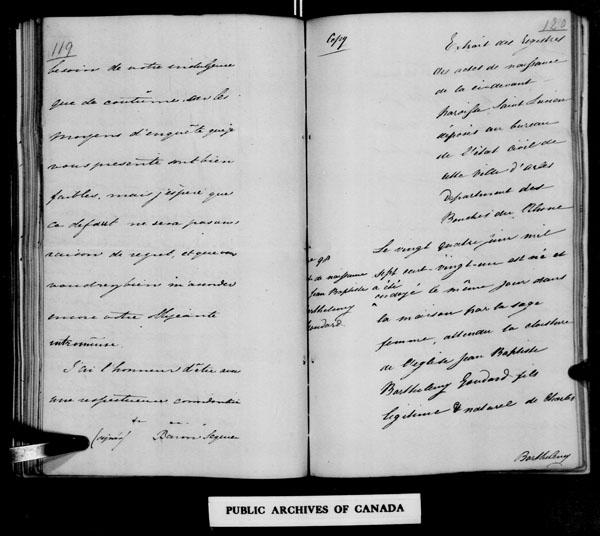 119
besoin de votre indulgence
que de coutûme car les
moyens d'enquête que je
vous presente sont bien
faibles, mais j'espere que
ce defaut ne sera pas une
raison de regret, et que vous
voudrez bien m'accorder
encore votre obligeante
entremise.
J'ai l'honneur d'être avec
une respectueuse consideration
&c
(signé) Baron Seguier
120
Copy
Extrait des Registres
des actes de naissance
de la cidevant
paroisse Saint Lucien
déposés au bureau
de l'état civil de
cette ville d'Arles
Departement des
Bouches du Rhone
98
de naissance
Jean Baptiste
Barthelemy
Goudard
Le vingt quatre juin mil
sept cent vingt-un est né et
a été
ondoyé le même jour dans
la maison par la sage
femme, attendu la cloture
de l'eglise Jean Baptiste
Barthelemy Goudard fils
legitime & naturel de Charles
Barthelemy
PUBLIC ARCHIVES OF CANADA